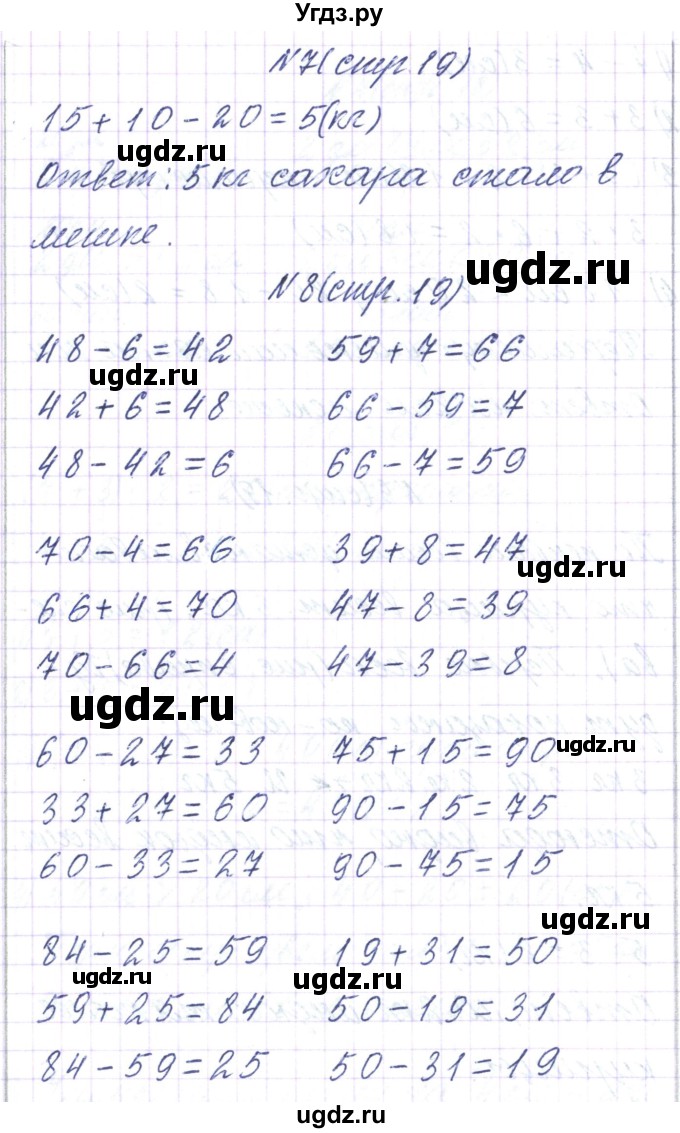 Угдз.ру
N7(стр.19)
15+10-20=5(кг)
ugdz.ru
Ответ: 5 кг сахара стало в
мешке.
ugdz.ru
N8(стр.19)
48-6=42 59+7=66
ugdz.ru
42+6=48 66-59=7
48-42=6 66-7=59
70-4=66 39+8=47
ugdz.ru
66+4=70 47-8=39
70-66=4 47-39=8
ugdz.ru
60-27=33 75+15=90
ugdz.ru
33+27=60 90-15=75
60-33=27 90-75=15
ugdz.ru
84-25=59 19+31=50
ugdz.ru ugdz.ru
59+25=84 50-19=31
84-59=25 50-31=19
ugdz.ru